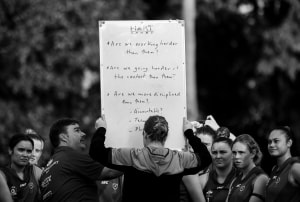 • Are we working harder
than them?
• Are we going harder at
the contest than them?
• Are we more disciplined
than them?
- Accountable?